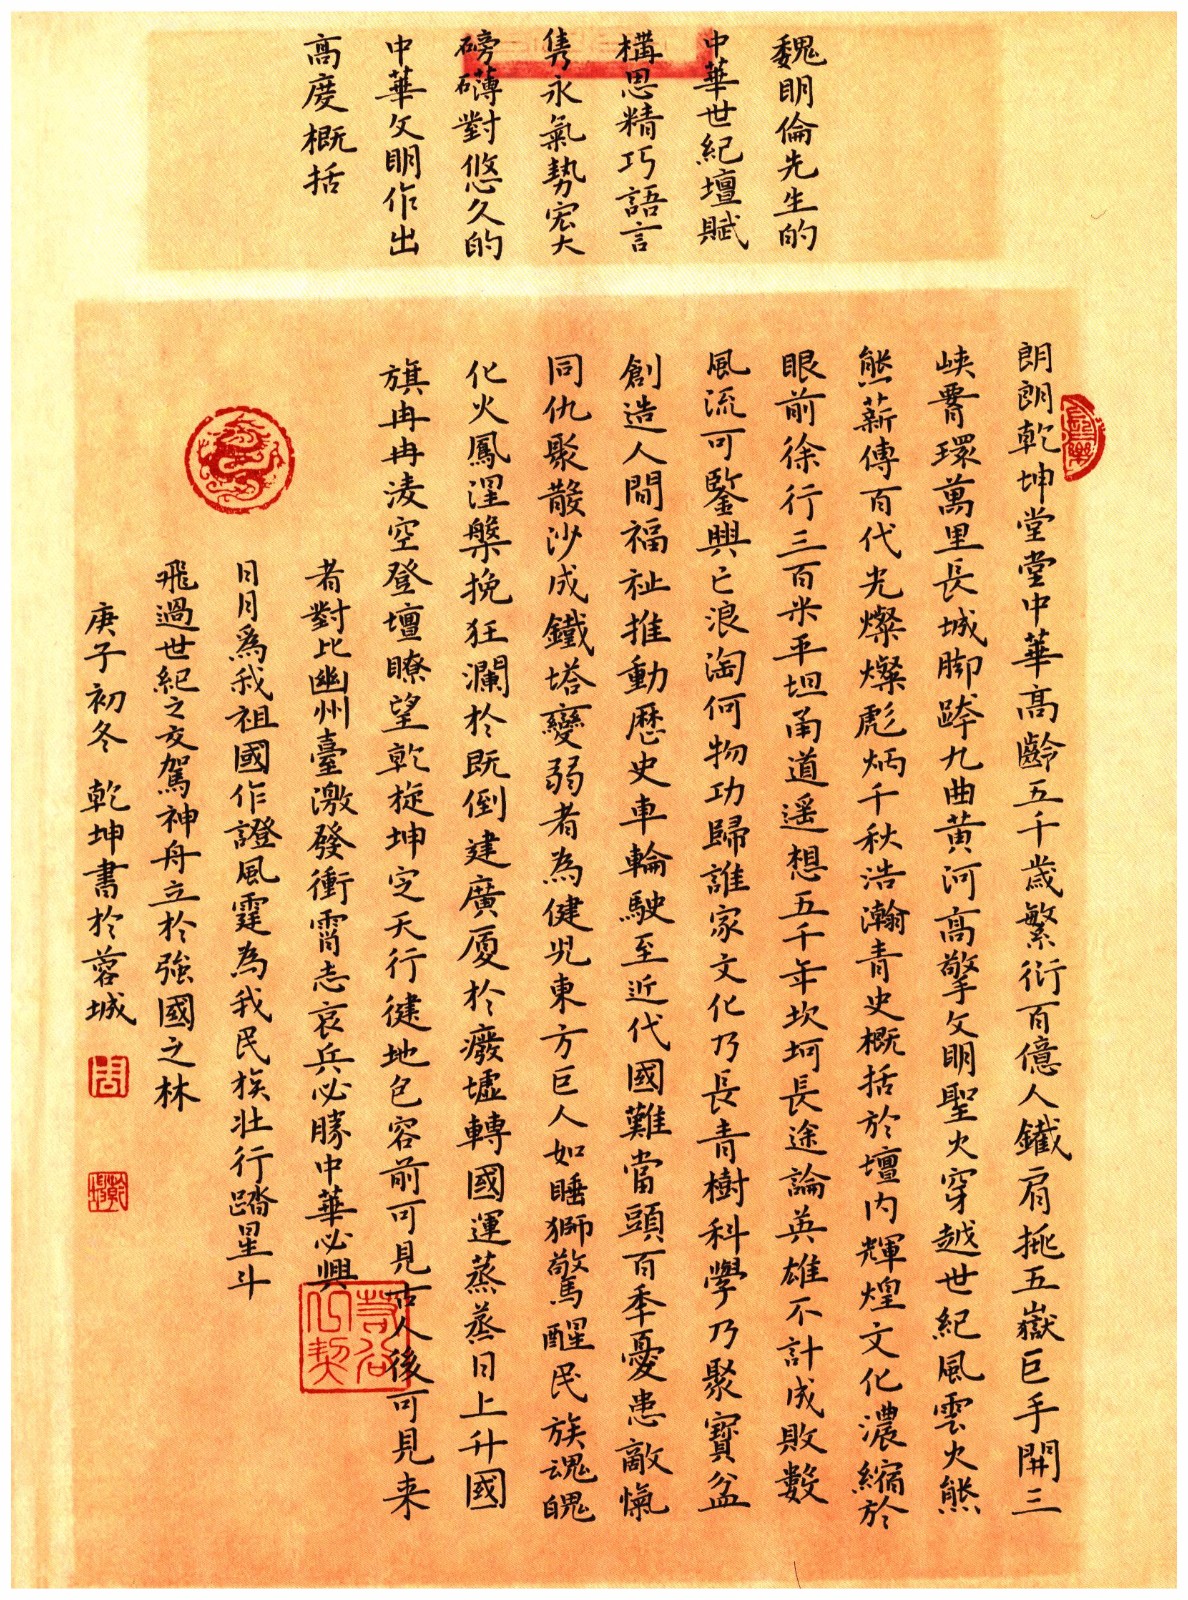 魏明倫先生的
中華世紀壇賦
構思精巧語言
雋永氣勢宏大
磅礴對悠久的
中華文明作出
高度概括
朗朗乾坤堂堂中華高齡五千歲繁衍百億人鐵肩挑五嶽巨手開三
峽臂環萬里長城脚跨九曲黄河高擎文明聖火穿越世紀風雲火熊
熊薪傳百代光燦燦彪炳千秋浩瀚青史概括於壇内輝煌文化濃縮於
眼前徐行三百米平坦甬道遥想五千年坎坷長途論英雄不計成敗數
風流可鑒興亡浪淘何物功歸誰家文化乃長青樹科學乃聚寶盆
創造人間福祉推動歷史車輪駛至近代國難當頭百年憂患敵愾
同仇聚散沙成鐵塔變弱者為健兒東方巨人如睡獅驚醒民族魂魄
化火鳳涅槃挽狂瀾於既倒建廣厦於廢墟轉國運蒸蒸日上升國
旗冉冉凌空登壇瞭望乾旋坤定天行健地包容前可見古人後可見来
者對比幽州臺激發衝霄志哀兵必勝中華必興
日月爲我祖國作證風霆為我民族壯行踏星斗
飛過世紀之交駕神舟立於強國之林
庚子初冬 乾坤書於蓉城